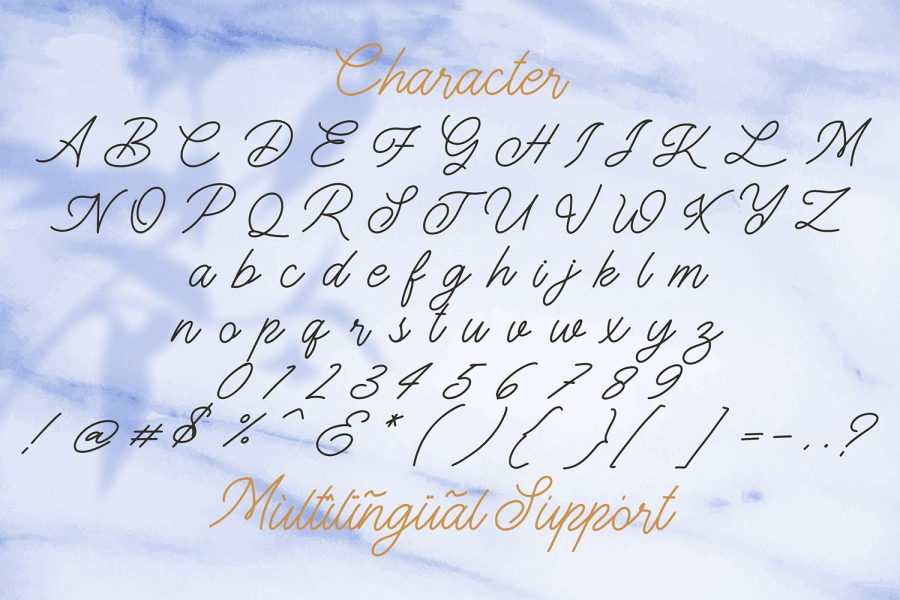 Character
A B C D E F G H I J K L M
N O P Q R S T U V W X Y Z
a b c d e f g h i j k l m
n o p q r s t u v w x y z
0 1 2 3 4 5 6 7 8 9
! @ # $ % ^ & * ( ) { } [ ] = - , . ?
Mùltîlïngüãl Support